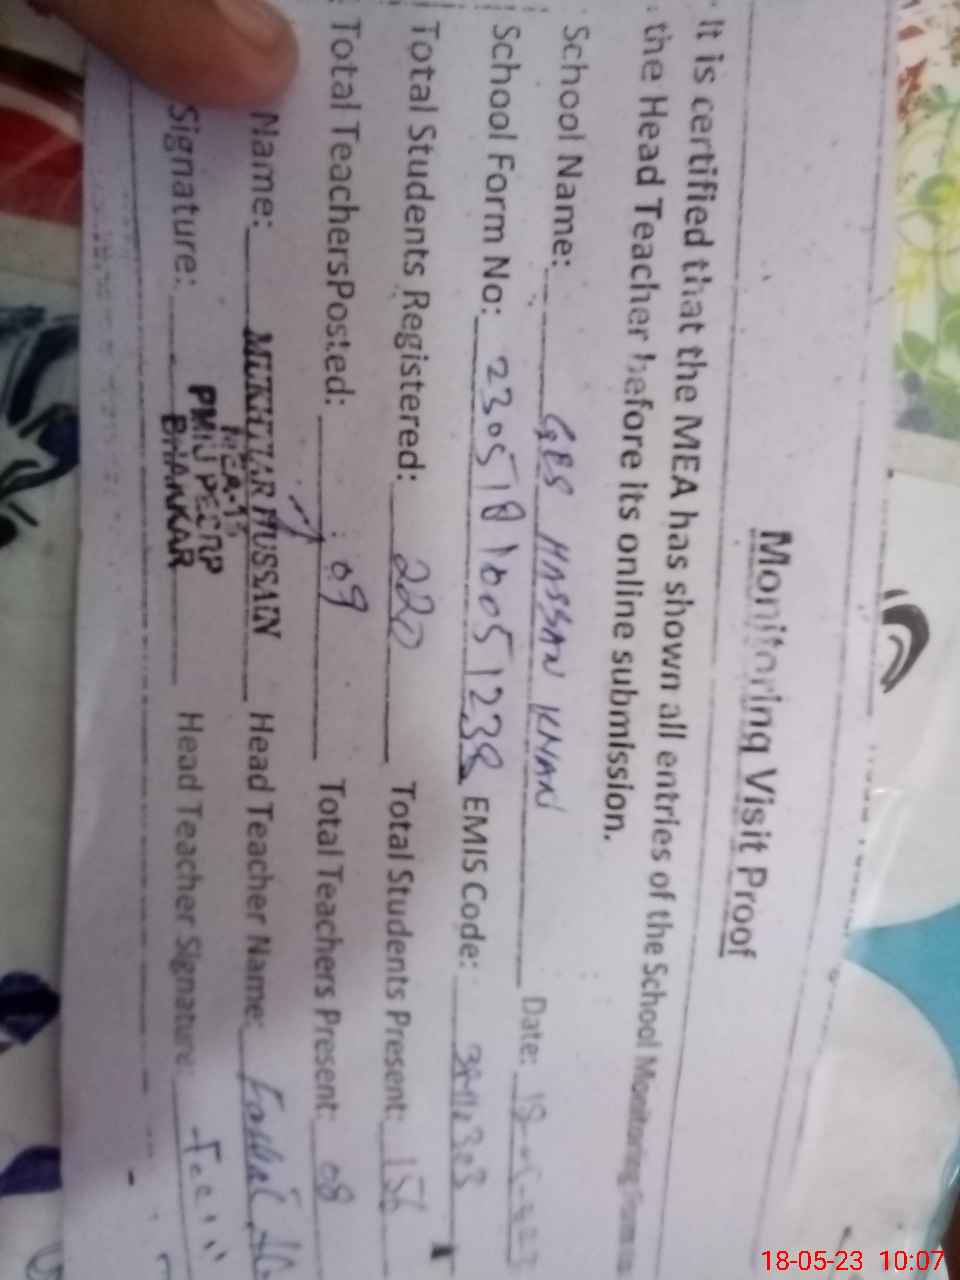 Monitoring Visit Proof
It is certified that the MEA has shown all entries of the School Monitoring Form to
the Head Teacher before its online submission.
School Name: GES HASSAN KHAN Date: 18-
School Form No: 230518 1005 1238 EMIS Code:
Total Students Registered: 220 Total Students Present: 156
Total TeachersPosted: 09 Total Teachers Present: 08
Name: MUKHTAR HUSSAIN Head Teacher Name:
MEA-15
PMIU PESRP
BHAKKAR
Signature: Head Teacher Signature:
18-05-23 10:07